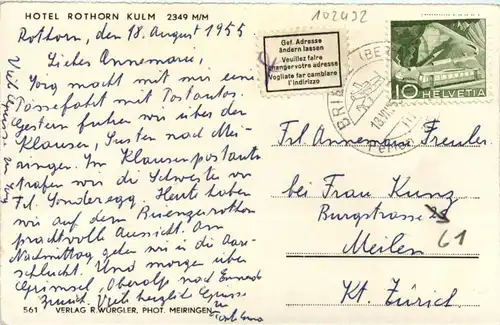 HOTEL ROTHORN KULM 2349 M/M
102492
Rothorn, den 18. August 1955
Liebes Annemarie,
Jörg macht mit mir eine
Passefahrt mit Postautos.
Gestern fuhren wir über den
Klausen, Susten nach Mei-
ringen. Im Klausenpostauto
trafen wir die Schwester von
Frl. Sonderegg. Heute haben
wir auf dem Brienzerrothorn
prachtvolle Aussicht. Am
Nachmittag gehen wir in die Aare-
schlucht. Und morgen über
Grimsel, Oberalp nach Ennenda
zurück. Viele herzlich Grüsse
Gef. Adresse
ändern lassen
Veuillez faire
changer votre adresse
Vogliate far cambiare
l'indirizzo
10 HELVETIA
BRIE
(BER
Frl. Annemarie Freuler
bei Frau Kunz
Burgstrasse
61
Meilen
Kt. Zürich
561 VERLAG R. WÜRGLER, PHOT. MEIRINGEN